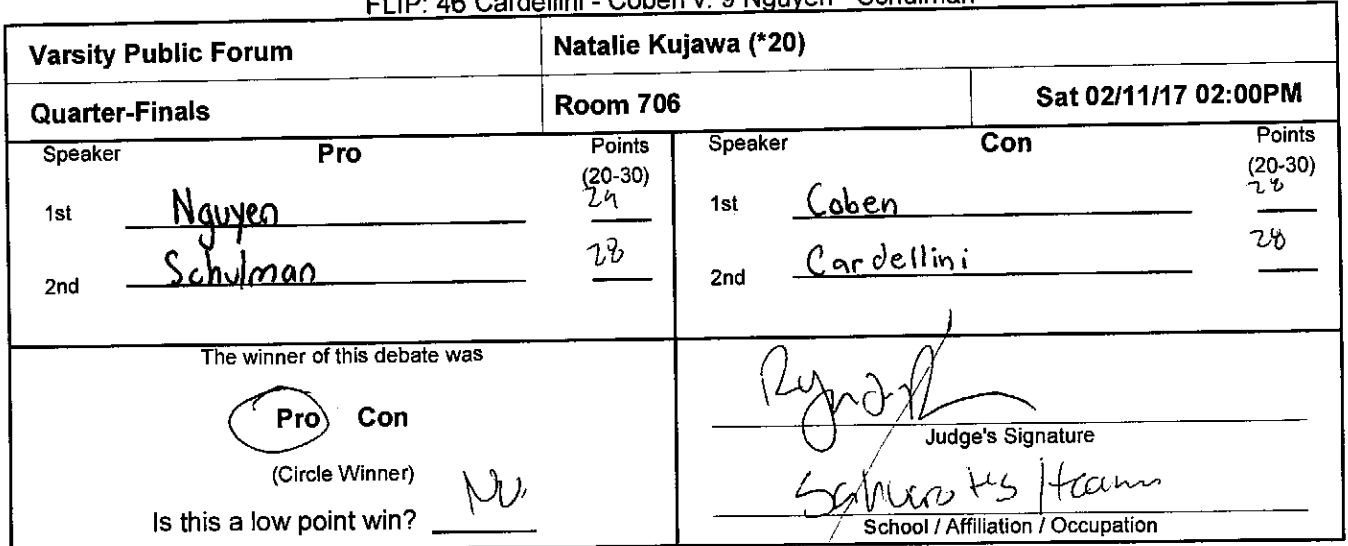 FLIP: 46 Cardellini - Coben v. 9 Nguyen - Schulman
Varsity Public Forum Natalie Kujawa (*20)
Quarter-Finals Room 706 Sat 02/11/17 02:00PM
Speaker Pro Points (20-30)
1st Nguyen 29
2nd Schulman 28
Speaker Con Points (20-30)
1st Coben 28
2nd Cardellini 28
The winner of this debate was
Pro Con
(Circle Winner)
Is this a low point win? No
Judge's Signature
HS
School / Affiliation / Occupation